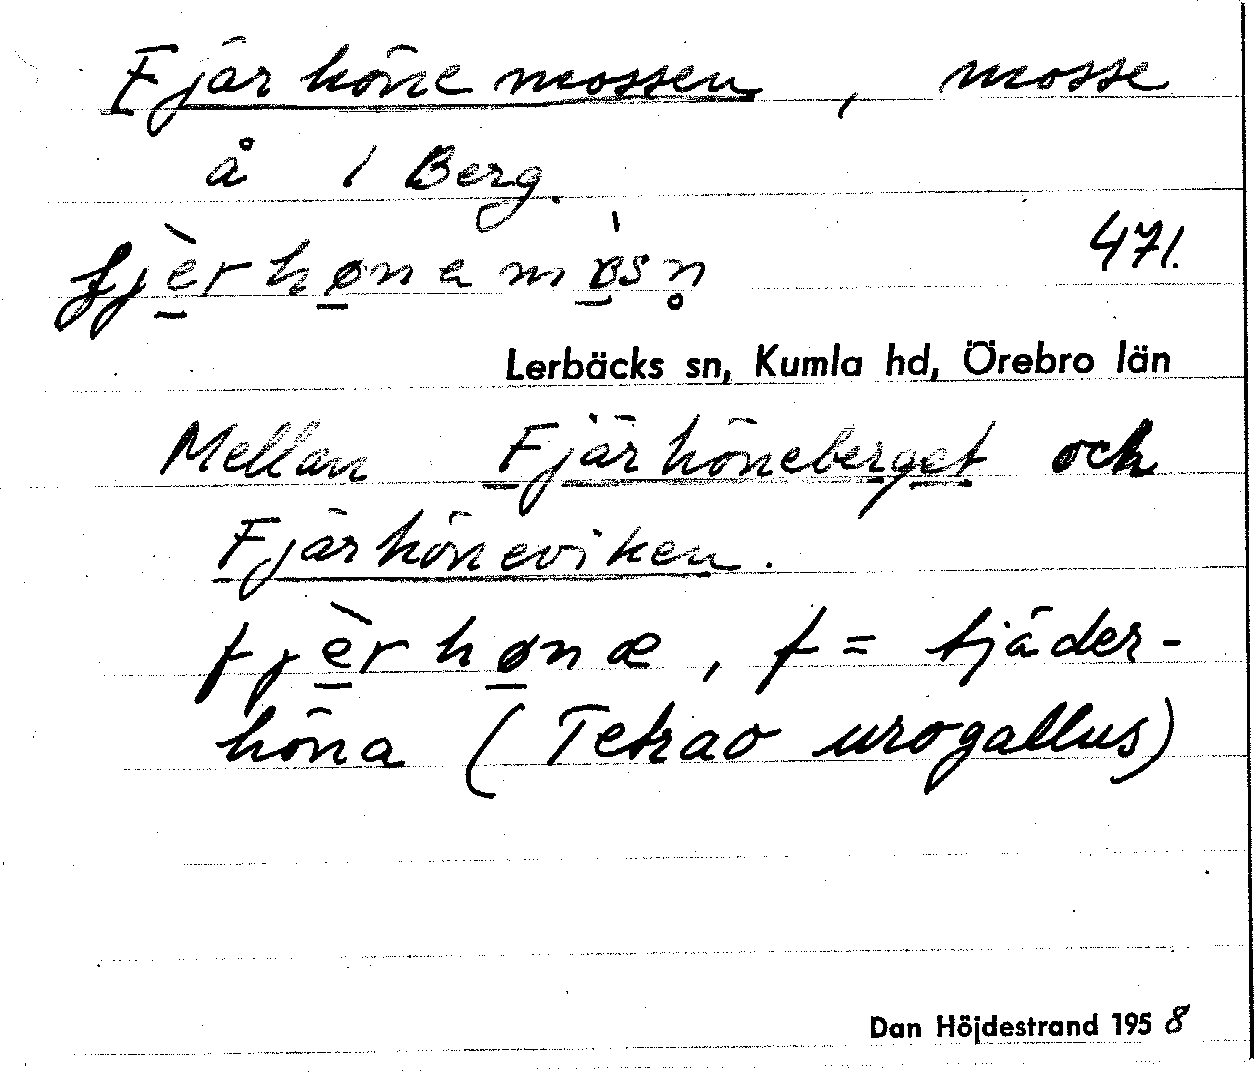 Fjärhönemossen, mosse
å 1 Berg.
fjèrhønamòsn̥
471.
Lerbäcks sn, Kumla hd, Örebro län
Mellan Fjärhöneberget och
Fjärhöneviken.
fjèrhønæ, f = tjäder-
höna (Tetrao urogallus)
Dan Höjdestrand 1958